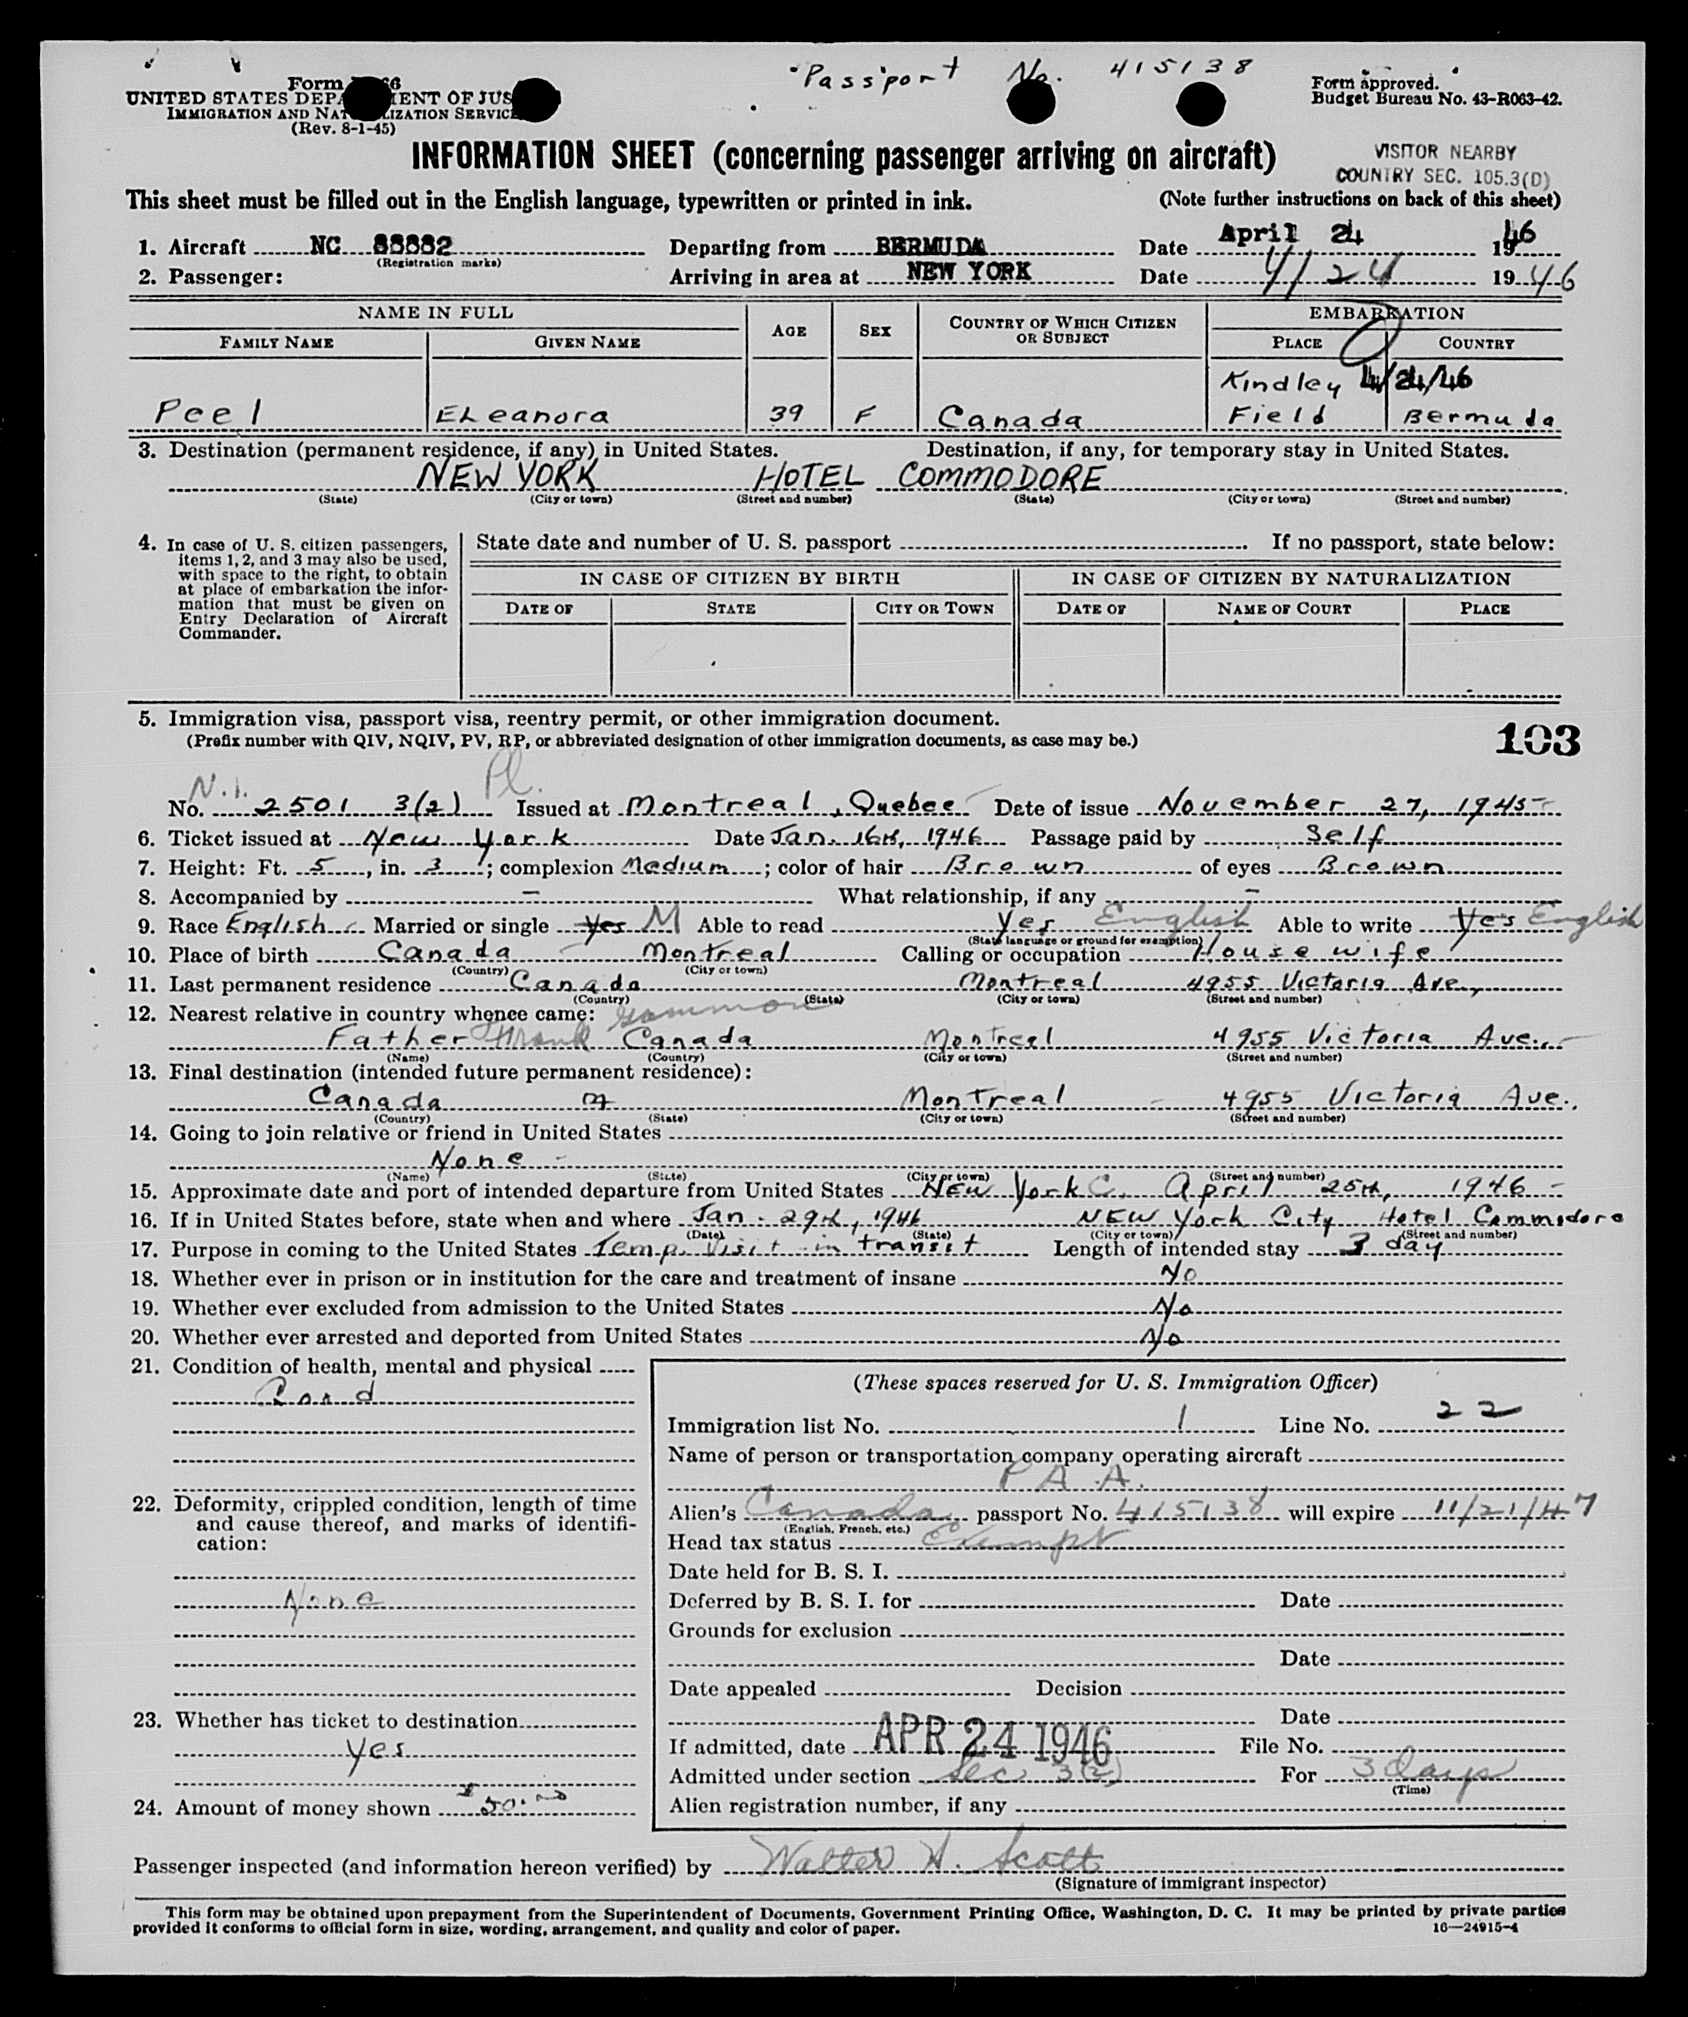 Passport No. 415138
Form 66
UNITED STATES DEPA MENT OF JUS
IMMIGRATION AND NAT LIZATION SERVICE
(Rev. 8-1-45)
Form approved.
Budget Bureau No. 43-R063-42.
INFORMATION SHEET (concerning passenger arriving on aircraft)
VISITOR NEARBY
COUNTRY SEC. 105.3(D)
This sheet must be filled out in the English language, typewritten or printed in ink.
(Note further instructions on back of this sheet)
1. Aircraft NC 88882 Departing from BERMUDA Date April 24 1946
(Registration marks)
2. Passenger: Arriving in area at NEW YORK Date 4/24 1946
NAME IN FULL AGE SEX COUNTRY OF WHICH CITIZEN OR SUBJECT EMBARKATION
FAMILY NAME GIVEN NAME PLACE COUNTRY
Kindley 4/24/46
Peel ELeanora 39 F Canada Field Bermuda
3. Destination (permanent residence, if any) in United States. Destination, if any, for temporary stay in United States.
NEW YORK HOTEL COMMODORE
(State) (City or town) (Street and number) (State) (City or town) (Street and number)
4. In case of U. S. citizen passengers,
items 1, 2, and 3 may also be used,
with space to the right, to obtain
at place of embarkation the infor-
mation that must be given on
Entry Declaration of Aircraft
Commander.
State date and number of U. S. passport . If no passport, state below:
IN CASE OF CITIZEN BY BIRTH IN CASE OF CITIZEN BY NATURALIZATION
DATE OF STATE CITY OR TOWN DATE OF NAME OF COURT PLACE
5. Immigration visa, passport visa, reentry permit, or other immigration document.
(Prefix number with QIV, NQIV, PV, RP, or abbreviated designation of other immigration documents, as case may be.)
103
N.I. Pl.
No. 2501 3(2) Issued at Montreal, Quebec Date of issue November 27, 1945
6. Ticket issued at New York Date Jan. 16th, 1946 Passage paid by Self
7. Height: Ft. 5, in. 3; complexion Medium; color of hair Brown of eyes Brown
8. Accompanied by - What relationship, if any -
9. Race English Married or single Yes M Able to read Yes English Able to write Yes English
(State language or ground for exemption)
10. Place of birth Canada Montreal Calling or occupation Housewife
(Country) (City or town)
11. Last permanent residence Canada Montreal 4955 Victoria Ave,
(Country) (State) (City or town) (Street and number)
12. Nearest relative in country whence came: Gammon
Father Frank Canada Montreal 4955 Victoria Ave.
(Name) (Country) (City or town) (Street and number)
13. Final destination (intended future permanent residence):
Canada Montreal 4955 Victoria Ave.
(Country) (State) (City or town) (Street and number)
14. Going to join relative or friend in United States
None -
(Name) (State) (City or town) (Street and number)
15. Approximate date and port of intended departure from United States New York C. April 25th, 1946
16. If in United States before, state when and where Jan. 29th, 1946 New York City Hotel Commodore
(Date) (State) (City or town) (Street and number)
17. Purpose in coming to the United States Temp. Visit in transit Length of intended stay 3 day
18. Whether ever in prison or in institution for the care and treatment of insane No
19. Whether ever excluded from admission to the United States No
20. Whether ever arrested and deported from United States No
21. Condition of health, mental and physical
Good
22. Deformity, crippled condition, length of time
and cause thereof, and marks of identifi-
cation:
None
23. Whether has ticket to destination
Yes
24. Amount of money shown $50.00
(These spaces reserved for U. S. Immigration Officer)
Immigration list No. 1 Line No. 22
Name of person or transportation company operating aircraft
P.A.A.
Alien's Canada passport No. 415138 will expire 11/21/47
(English, French, etc.)
Head tax status Exempt
Date held for B. S. I.
Deferred by B. S. I. for Date
Grounds for exclusion
Date
Date appealed Decision
Date
If admitted, date APR 24 1946 File No.
Admitted under section Sec 3(2) For 3 Days
(Time)
Alien registration number, if any
Passenger inspected (and information hereon verified) by Walter H. Scott
(Signature of immigrant inspector)
This form may be obtained upon prepayment from the Superintendent of Documents, Government Printing Office, Washington, D. C. It may be printed by private parties
provided it conforms to official form in size, wording, arrangement, and quality and color of paper.
16—24915-4